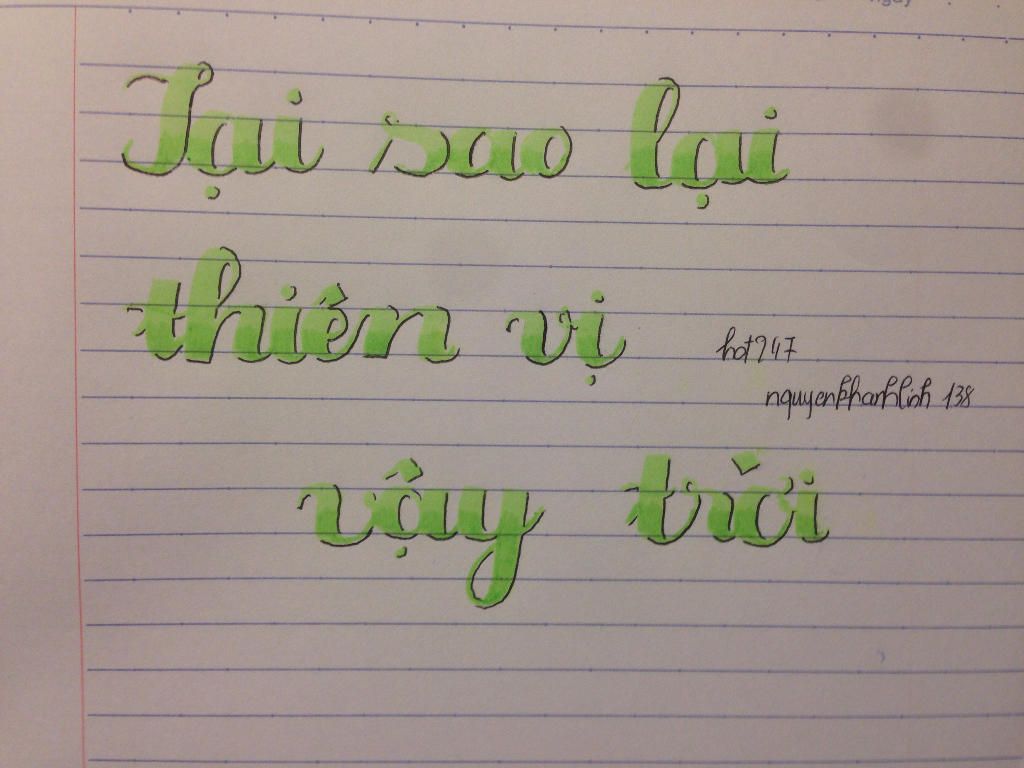 Tại sao lại
thiên vị
hot947
nguyenkhanhlinh 138
vậy trời